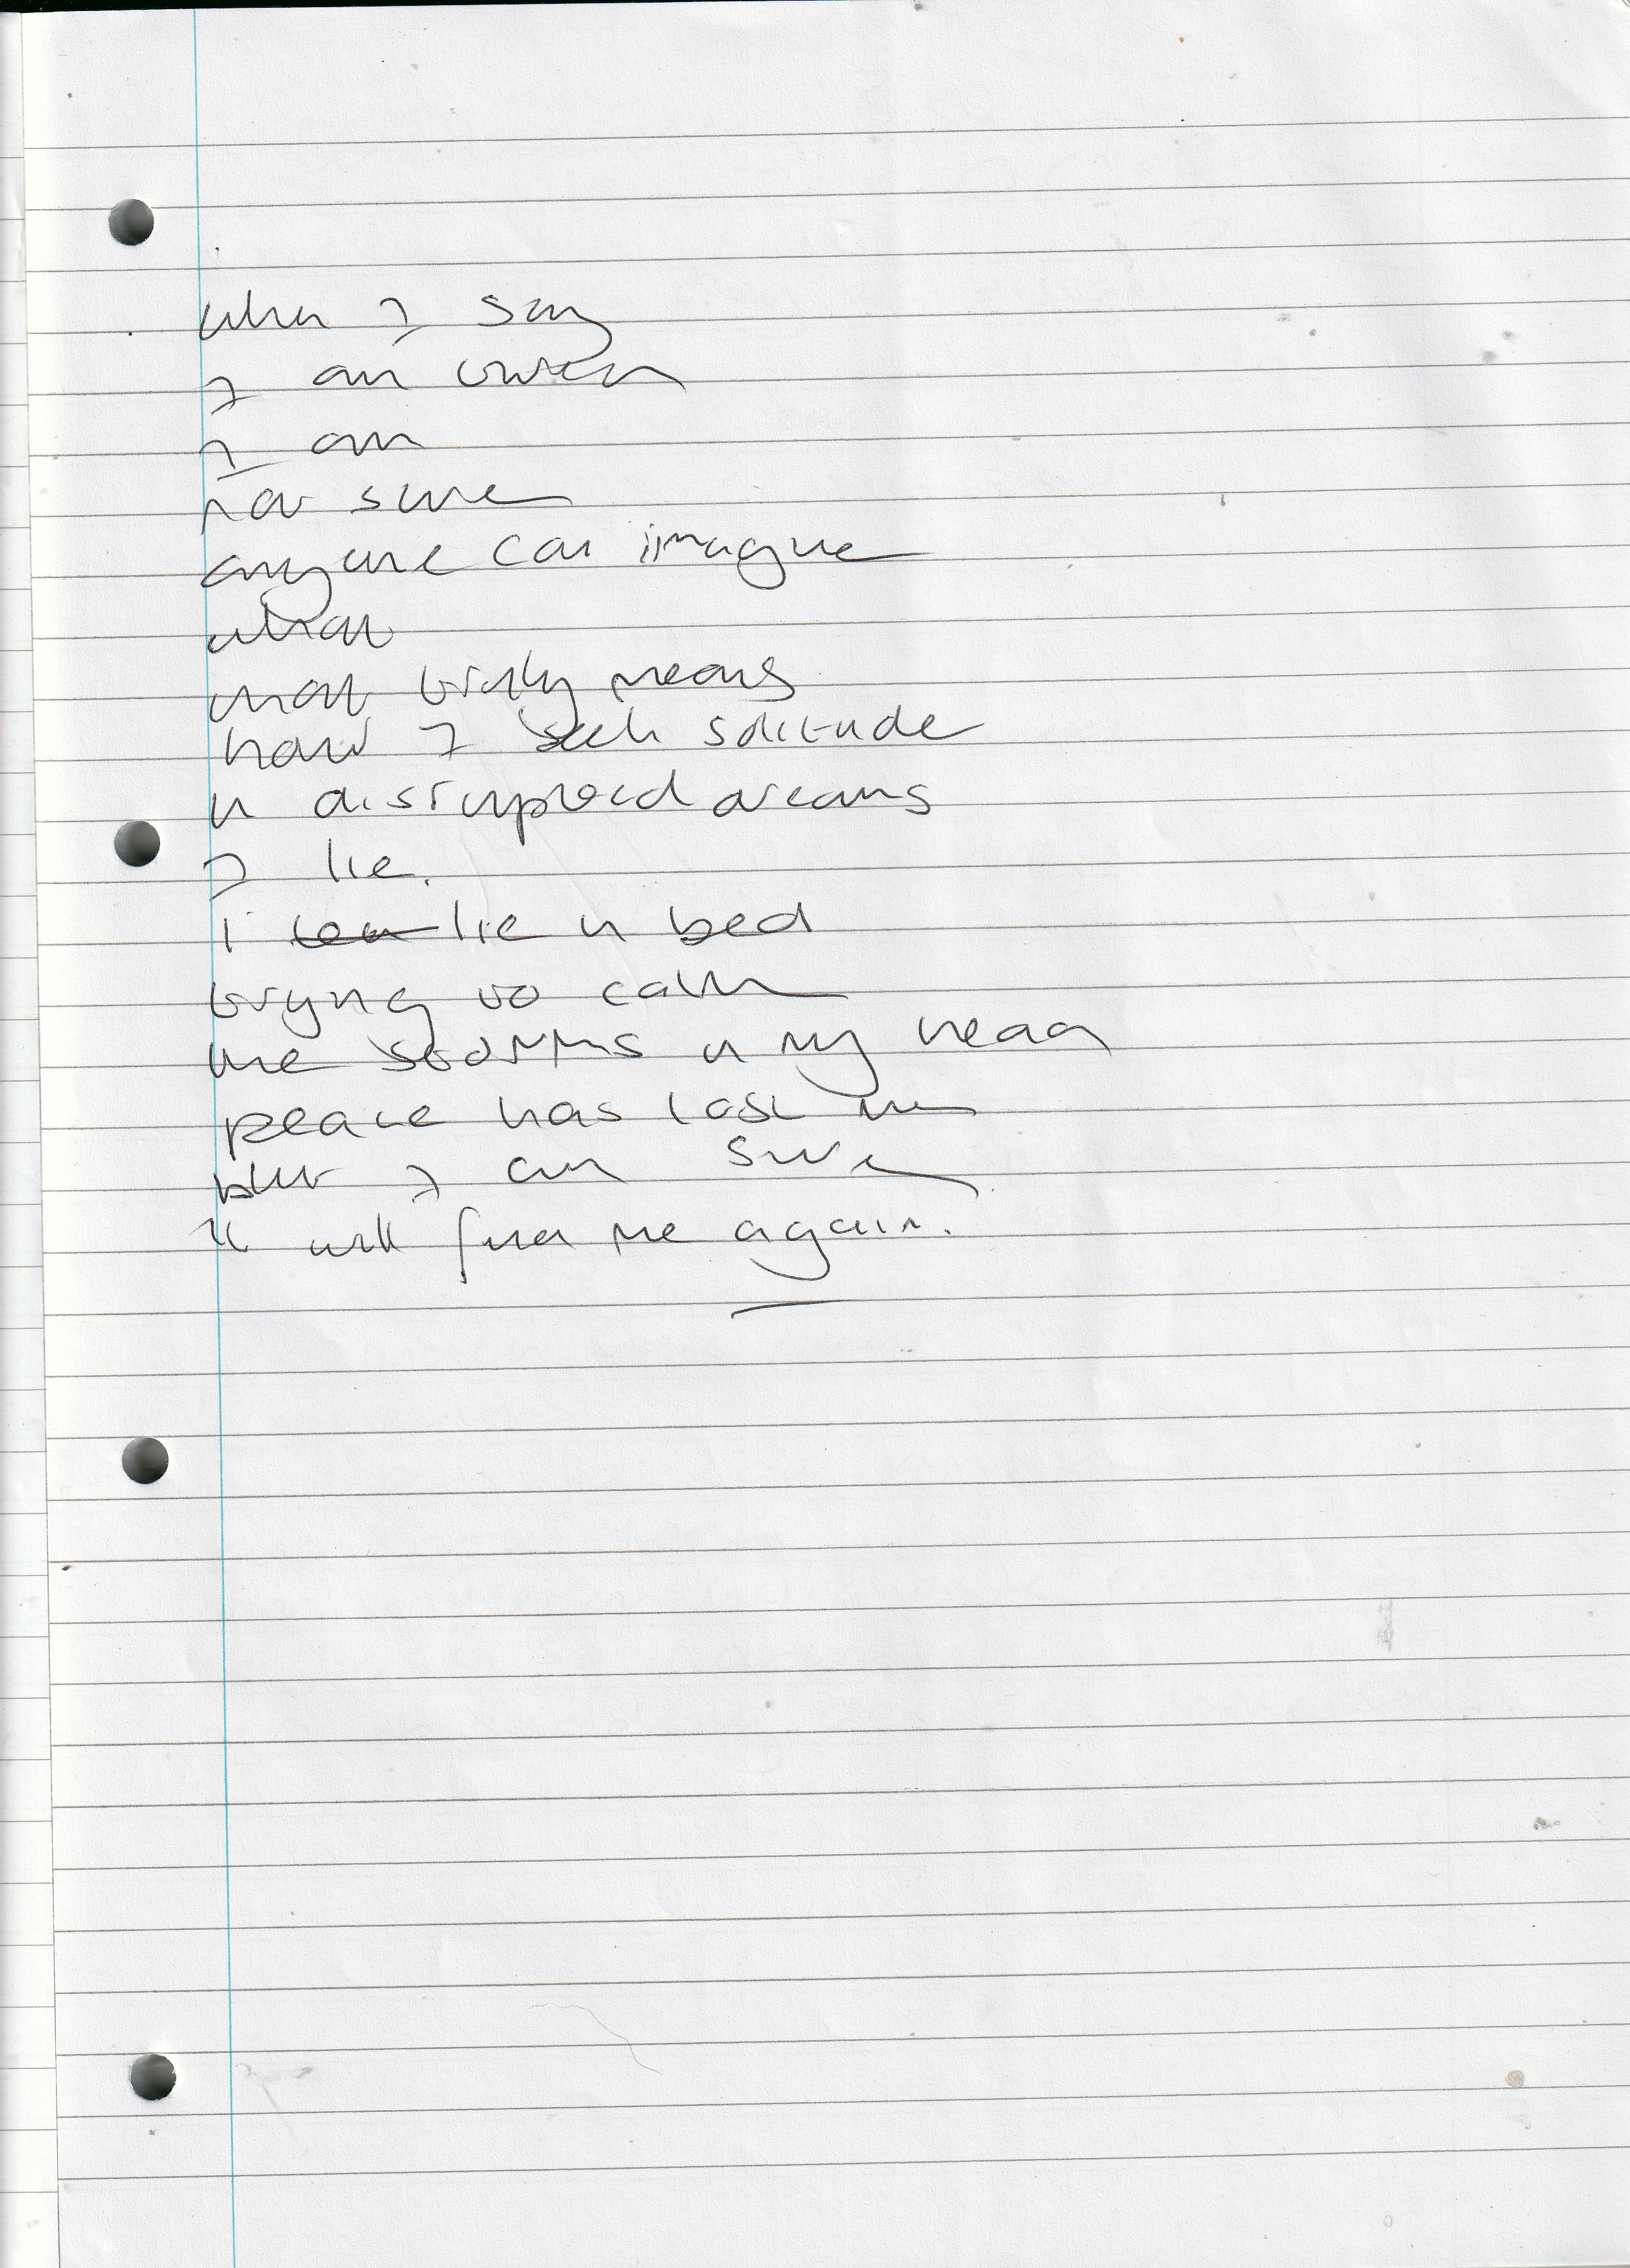 when I say
I am tired
I am
not sure
anyone can imagine
what
that truly means
how I seek solitude
in disrupted dreams
I lie.
I lie in bed
trying to calm
the storms in my head
peace has lost me
but I am sure
it will find me again.